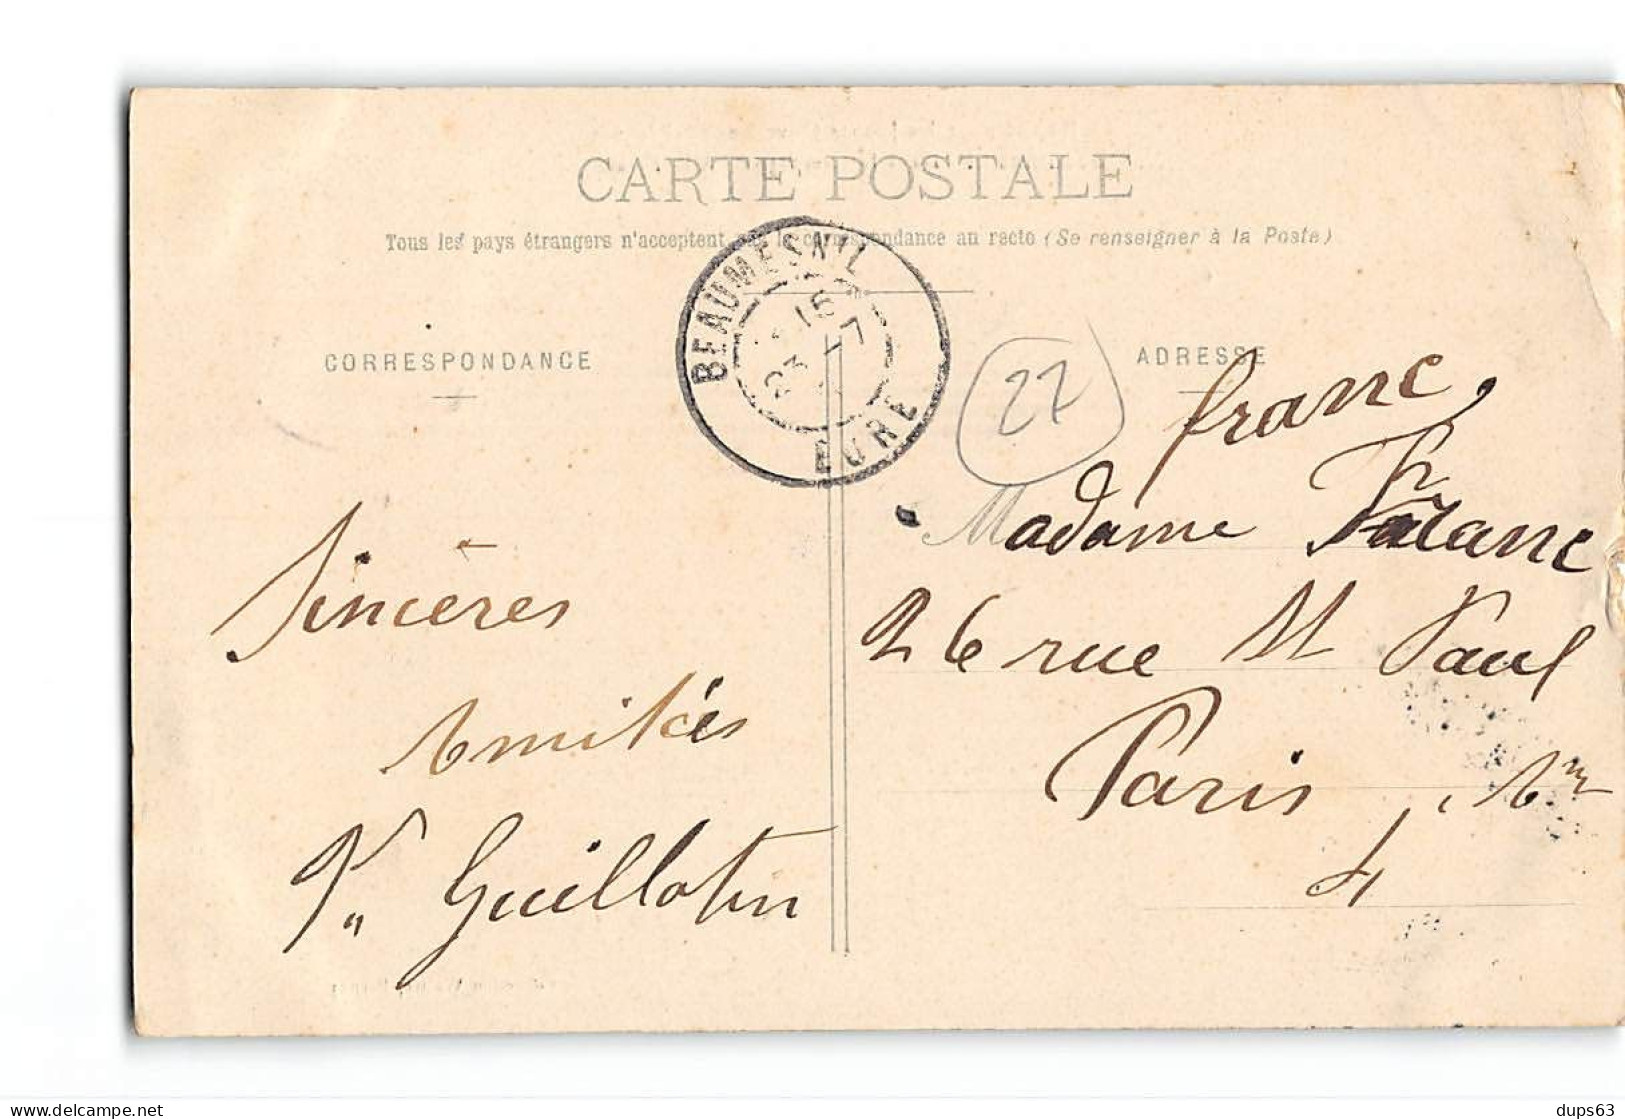 CARTE POSTALE
Tous les pays étrangers n'acceptent pas la correspondance au recto (Se renseigner à la Poste)
BEAUMESNIL
15
23 -7
EURE
CORRESPONDANCE
ADRESSE
22
franc
Madame Franc
26 rue St Paul
Paris
4
Sincères
Amitiés
Guillotin
delcampe.net
dups63